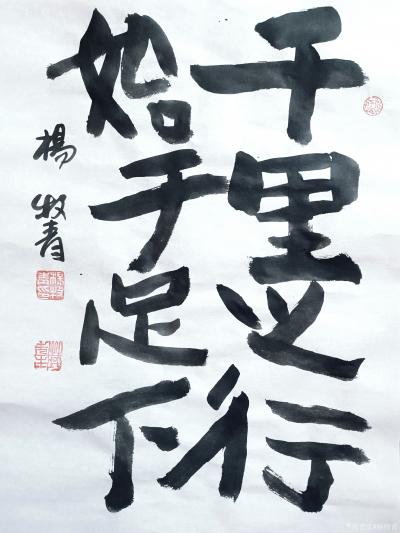 千里之行
始于足下
楊牧青